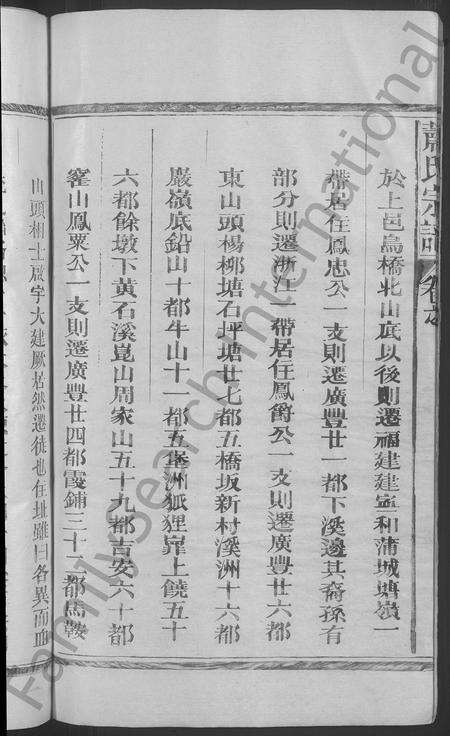 蕭氏宗譜 卷之
於上邑烏橋北山底以後則遷福建建寧和蒲城塘嶺一
帶居住鳳忠公一支則遷廣豐廿一都下溪邊其裔孫有
部分則遷浙江一帶居住鳳爵公一支則遷廣豐廿六都
東山頭楊柳塘石坪塘廿七都五橋坂新村溪洲十六都
嚴嶺底鉛山十都牛山十一都五堡洲狐狸岸上饒五十
六都餘墩下黄石溪崑山周家山五十九都吉安六十都
窰山鳳粟公一支則遷廣豐廿四都霞鋪三十一都馬鞍
山頭相士啟宇大建厥居然遷徒也住址雖曰各異而血
FamilySearch International